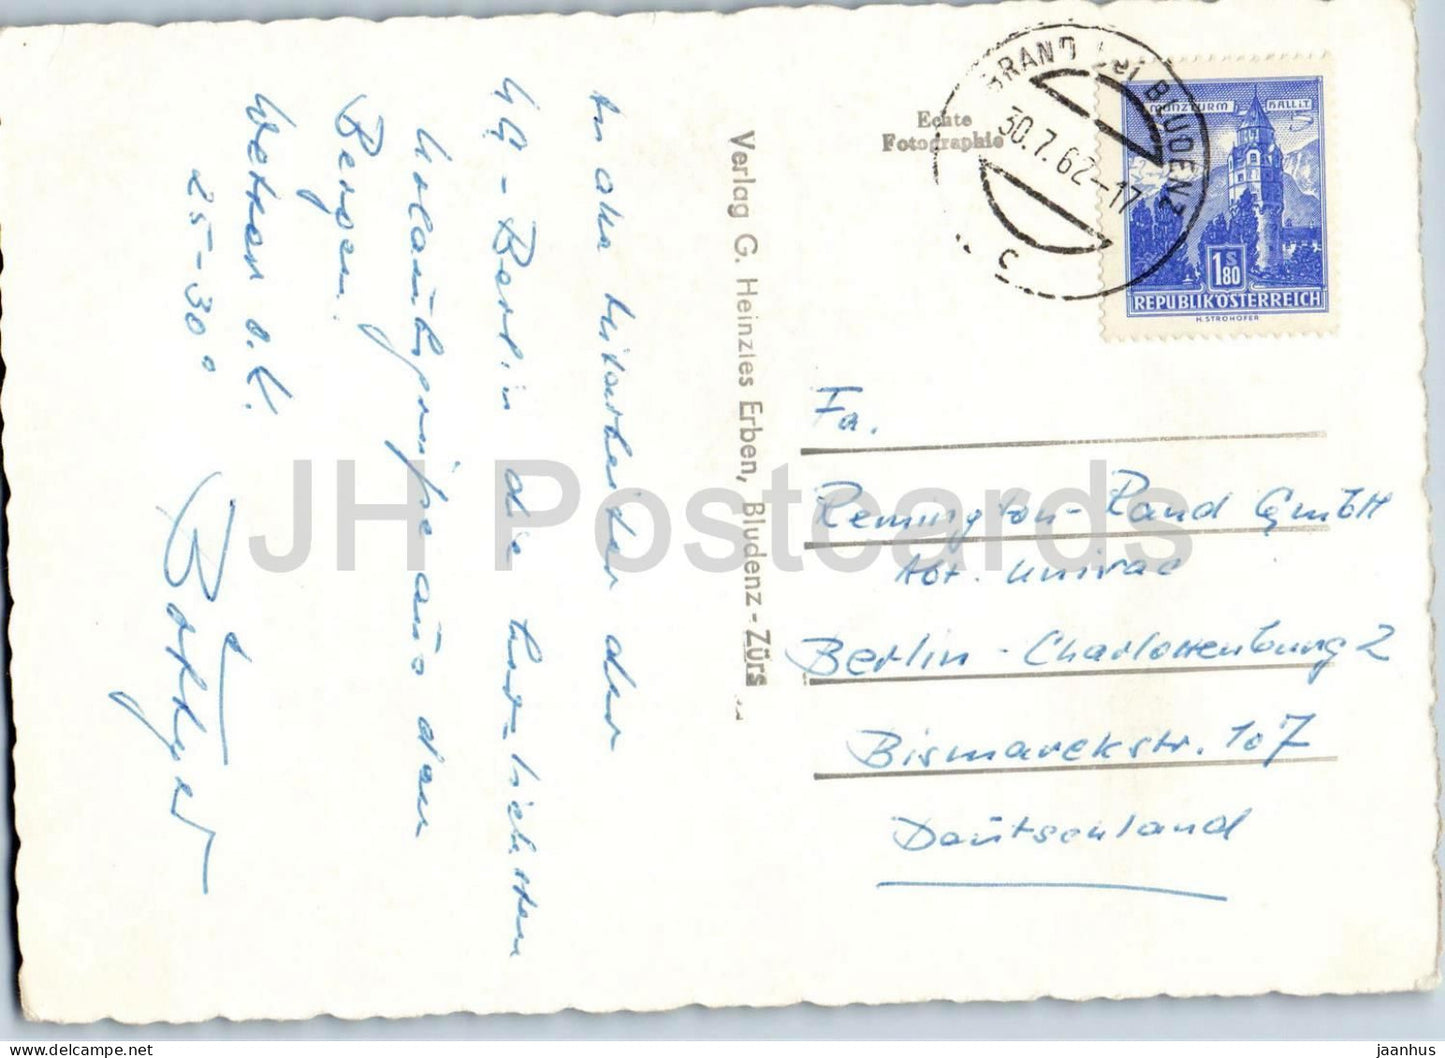 An alle Mitarbeiter der
GG-Berlin die herzlichsten
Urlaubsgrüße aus den
Bergen.
Wetter o.K.
25-30°
Böttger
Verlag G. Heinzles Erben, Bludenz-Zürs
Echte
Fotographie
BRAND bei BLUDENZ
30.7.62-17
c
MÜNZTURM HALL i.T.
1.80 S
REPUBLIK ÖSTERREICH
H. STROHOFER
Fa.
Remington-Rand GmbH
Abt. Univac
Berlin-Charlottenburg 2
Bismarckstr. 107
Deutschland
JH Postcards
jaanhus
delcampe.net